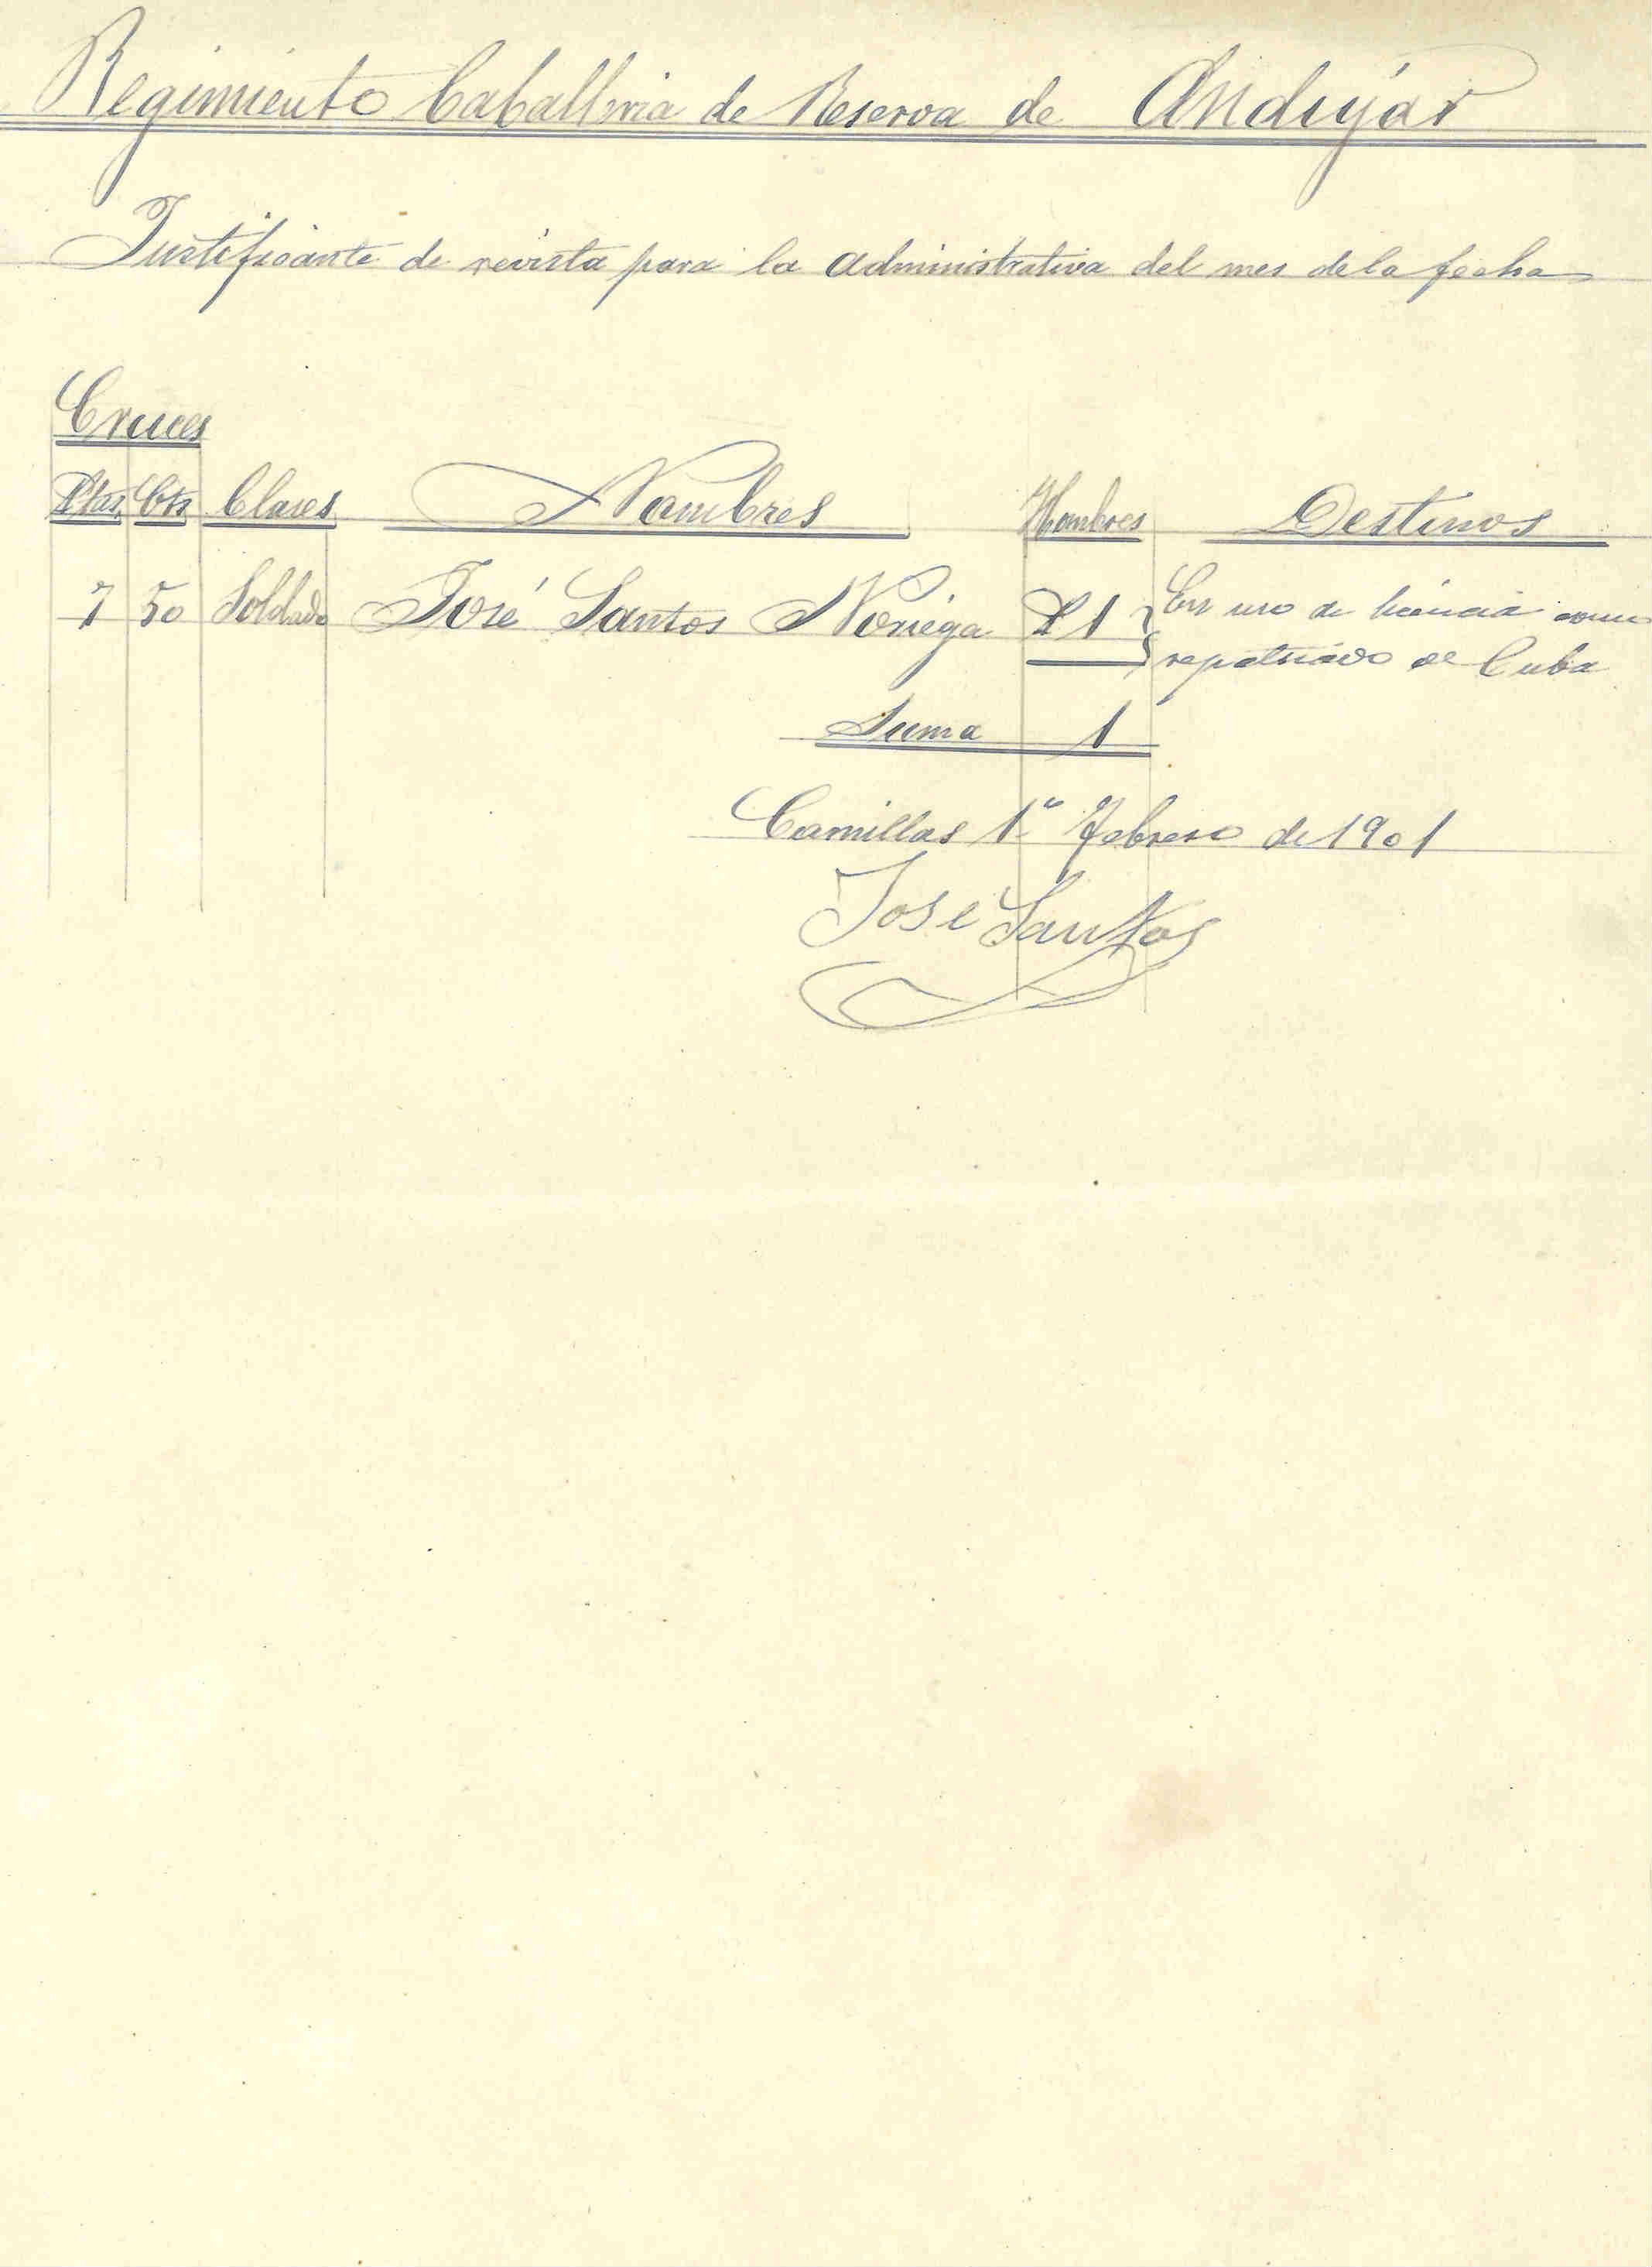 Regimiento Caballeria de Reserva de Andújar
Justificante de revista para la administrativa del mes de la fecha
Cruces
Ptas Cts Clases Nombres Hombres Destinos
7 50 Soldado José Santos Noriega 1 En uso de licencia como
repatriado de Cuba
Suma 1
Camillas 1º Febrero de 1901
Jose Santos